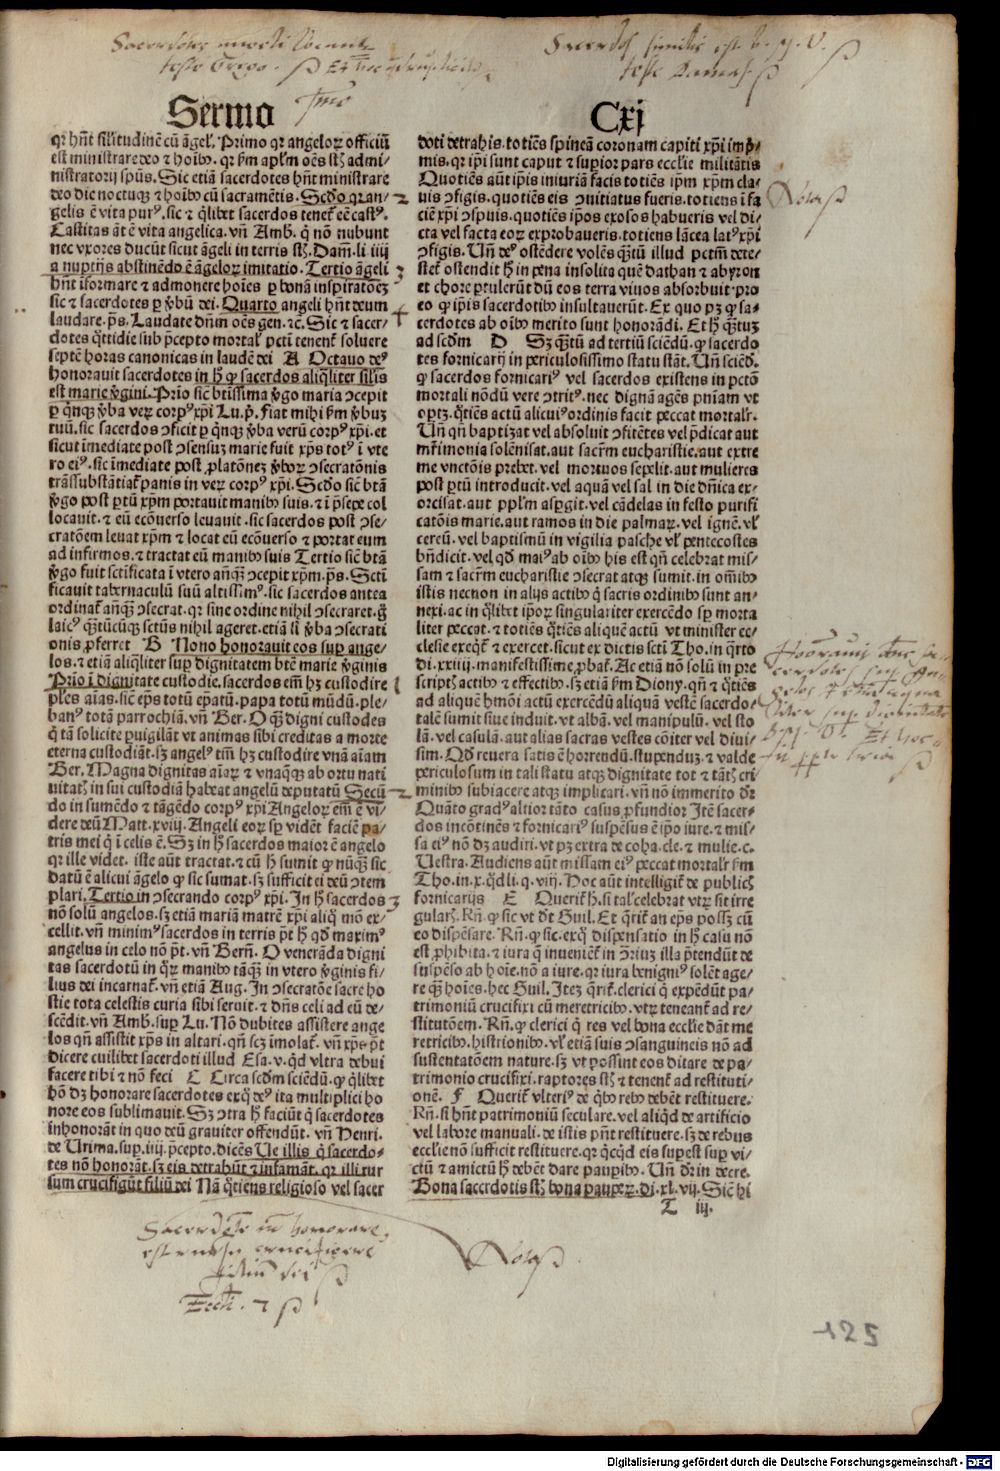 Sermo
Cxj
qr hñt silitudinẽ cũ ãgel'. Primo qr angeloꝝ officiũ
est ministrare deo ⁊ hoibꝰ. qr ẜm aplm oẽs st̃ admi-
nistratorij spũs. Sic etiã sacerdotes hñt ministrare
deo die noctuqꝫ ⁊ hoibꝰ cũ sacramẽtis. Scďo qr an-
gelis ẽ vita purꝰ. sic ⁊ qĺibet sacerdos tenet̃ eẽ castꝰ.
Castitas ãt ẽ vita angelica. vñ Amb. q̃ nõ nubunt
nec vxores ducũt sicut ãgeli in terris st̃. Dam̃. li iiij
a nuptijs abstinẽdo ẽ ãgeloꝝ imitatio. Tertio ãgeli
hñt iformare ⁊ admonere hoĩes ꝑ bonã inspiratõeꝫ
sic ⁊ sacerdotes ꝑ v̾bũ dei. Quarto angeli hñt deum
laudare. ps̃. Laudate dñm oẽs gen. ⁊c̃. Sic ⁊ sacer-
dotes q̃ttidie sub p̃cepto mortal' pcti tenent̃ soluere
septẽ horas canonicas in laudẽ dei A Octauo deꝰ
honorauit sacerdotes in h̃ ꝙ sacerdos aliq̃liter silis
est marie v̾gini. Prĩo sic̃ btissima v̾go maria ↄcepit
ꝑ q̃nqꝫ v̾ba veꝝ corpꝰ xp̃i Lu. p̃. Fiat mihi ẜm v̾bum
tuũ. sic sacerdos ↄficit ꝑ q̃nqꝫ v̾ba verũ corpꝰ xp̃i. et
sicut ĩmediate post ↄsensum marie fuit xp̃s totꝰ ĩ vte
ro eiꝰ. sic ĩmediate post ꝓlatõnẽ v̾boꝝ ↄsecratõnis
trãssubstãtiat̃ panis in veꝝ corpꝰ xp̃i. Scďo sic̃ btã
v̾go post ꝑtũ xp̃m portauit manibꝰ suis. ⁊ ĩ p̃sepe col
locauit. ⁊ eũ ecõuerso leuauit. sic sacerdos post ↄse-
cratõem leuat xp̃m ⁊ locat eũ ecõuerso ⁊ portat eum
ad infirmos. ⁊ tractat eũ manibꝰ suis Tertio sic̃ btã
v̾go fuit sctificata ĩ vtero añq̃ꝫ ↄcepit xp̃m. ps̃. Scti
ficauit tabernaculũ suũ altissimꝰ. sic sacerdos antea
ordinat̃ añq̃ꝫ ↄsecrat. qr sine ordine nihil ↄsecraret. g̃
laicꝰ q̃ꝫtũcũqꝫ sctũs nihil ageret. etiã si v̾ba ↄsecrati
onis ꝓferret B Nono honorauit eos suꝑ ange-
los. ⁊ etiã aliq̃liter suꝑ dignitatem btẽ marie v̾ginis
Prĩo ĩ dignitate custodie. sacerdos em̃ hꝫ custodire
pl̃es aĩas. sic̃ ep̃s totũ ep̃atũ. papa totũ mũdũ. ple-
banꝰ totã parrochiã. vñ Ber. O q̃ꝫ digni custodes
q̃ tã solicite ꝑuigilãt vt animas sibi creditas a morte
eterna custodiãt. sꝫ angelꝰ tm̃ hꝫ custodire vnã aĩam
Ber. Magna dignitas aĩaꝝ ⁊ vnaq̃qꝫ ab ortu nati
uitatis in sui custodiã habeat angelũ deputatũ Secũ
do in sumẽdo ⁊ tãgẽdo corpꝰ xp̃i Angeloꝝ em̃ ẽ vi-
dere deũ Matt. xviij. Angeli eoꝝ sꝑ vidẽt faciẽ pa-
tris mei q̃ ĩ celis ẽ. Sꝫ in h̃ sacerdos maior ẽ angelo
qr ille videt. iste aũt tractat. ⁊ cũ h̃ sumit ꝙ nũq̃ꝫ sic
datũ ẽ alicui ãgelo ꝙ sic sumat. sꝫ sufficit ei deũ ↄtem
plari. Tertio in ↄsecrando corpꝰ xp̃i. In h̃ sacerdos
nõ solũ angelos. sꝫ etiã mariã matrẽ xp̃i aliq̃ mõ ex-
cellit. vñ minimꝰ sacerdos in terris p̃t h̃ qď maximꝰ
angelus in celo nõ p̃t. vñ Berñ. O venerãda digni
tas sacerdotũ in q̃ꝝ manibꝰ tãq̃ꝫ in vtero v̾ginis fi-
lius dei incarnat̃. vñ etiã Aug. In ↄsecratõe sacre ho
stie tota celestis curia sibi seruit. ⁊ dñs celi ad eũ de-
scẽdit. vñ Amb. suꝑ Lu. Nõ dubites assistere ange
los qñ assistit xp̃s in altari. qñ scꝫ imolat̃. vñ xp̃s p̃t
dicere cuilibet sacerdoti illud Esa. v. qď vltra debui
facere tibi ⁊ nõ feci C Circa scďm sciẽdũ. ꝙ q̃libet
hõ dꝫ honorare sacerdotes exq̃ deꝰ ita multiplici ho
nore eos sublimauit. Sꝫ ↄtra h̃ faciũt q̃ sacerdotes
inhonorãt in quo deũ grauiter offendũt. vñ Henri.
de Vrima. suꝑ. iiij. p̃cepto. dicẽs Ue illis q̃ sacerdo-
tes nõ honorãt. sꝫ eis detrahũt ⁊ infamãt. qr illi rur
sum crucifigũt filiũ dei Nã q̃tiens religioso vel sacer
doti detrahis. totiẽs spineã coronam capiti xp̃i imp̃-
mis. qr ip̃i sunt caput ⁊ suꝑior pars ecclie militãtis
Quotiẽs aũt ip̃is iniuriã facis totiẽs ip̃m xp̃m cla-
uis ↄfigis. quotiẽs eis ↄminatus fueris. totiens ĩ fa
ciẽ xp̃i ↄspuis. quotiẽs ip̃os exosos habueris vel di-
cta vel facta eoꝝ exprobaueris. totiens lãcea latꝰ xp̃i
ↄfigis. Uñ deꝰ ostẽdere volẽs q̃ꝫtũ illud pctm̃ dete-
stet̃ ostendit h̃ in pena insolita quẽ dathan ⁊ abyron
et chore ꝑtulerũt dũ eos terra viuos absorbuit. pro
eo ꝙ ip̃is sacerdotibꝰ insultauerũt. Ex quo pꝫ ꝙ sa-
cerdotes ab oĩbꝰ merito sunt honorãdi. Et h̃ q̃ꝫtuꝫ
ad scďm D Sꝫ q̃ꝫtũ ad tertiũ sciẽdũ. ꝙ sacerdo
tes fornicarij in periculosissimo statu stãt. Uñ sciẽď.
ꝙ sacerdos fornicariꝰ vel sacerdos existens in pctõ
mortali nõdũ vere ↄtritꝰ. nec dignã agẽs pñiam vt
optꝫ. q̃tiẽs actũ alicuiꝰ ordinis facit peccat mortalr̃.
Uñ qñ baptizat vel absoluit ↄfitẽtes vel p̃dicat aut
mr̃imonia solẽnisat. aut sacrm̃ eucharistie. aut extre
me vnctõnis prebet. vel mortuos sepelit. aut mulieres
post ꝑtũ introducit. vel aquã vel sal in die dñica ex-
orcisat. aut pplm asꝑgit. vel cãdelas in festo purifi
catõis marie. aut ramos in die palmaꝝ. vel ignẽ. vl'
cereũ. vel baptismũ in vigilia pasche vl' pentecostes
bñdicit. vel qď maiꝰ ab oĩbꝰ his est qñ celebrat mis-
sam ⁊ sacrm̃ eucharistie ↄsecrat atqꝫ sumit. in oĩbꝰ
istis necnon in alijs actibꝰ q̃ sacris ordinibꝰ sunt an-
nexi. ac in q̃libet ip̃oꝝ singulariter exercẽdo sꝑ morta
liter peccat. ⁊ totiẽs q̃tiẽs aliquẽ actũ vt minister ec-
clesie exeq̃t̃ ⁊ exercet. sicut ex dictis scti Tho. in q̃rto
di. xxiiij. manifestissime ꝓbat̃. Ac etiã nõ solũ in pre
scriptis actibꝰ ⁊ effectibꝰ. sꝫ etiã ẜm Diony. qñ ⁊ q̃tiẽs
ad aliquẽ hm̃õi actũ exercẽdũ aliquã vestẽ sacerdo-
talẽ sumit siue induit. vt albã. vel manipulũ. vel sto
lã. vel casulã. aut alias sacras vestes cõiter vel diui-
sim. Qď reuera satis ẽ horrendũ. stupenduꝫ. ⁊ valde
periculosum in tali statu atqꝫ dignitate tot ⁊ tãtis cri
minibꝰ subiacere atqꝫ implicari. vñ nõ immerito dr̃
Quãto gradꝰ altior tãto casus ꝓfundior Itẽ sacer-
dos incõtinẽs ⁊ fornicariꝰ suspẽsus ẽ ip̃o iure. ⁊ mis-
sa eiꝰ nõ dꝫ audiri. vt pꝫ extra de coha. cle. ⁊ mulie. c.
Uestra. Audiens aũt missam eiꝰ peccat mortalr̃ ẜm
Tho. in. x. q̃dli. q. viij. Hoc aũt intelligit̃ de publicis
fornicarijs E Querit̃ h̃. si tal' celebrat vtꝝ sit irre
gularis. Rñ. ꝙ sic vt dt̃ Guil. Et q̃rit̃ an ep̃s possꝫ cũ
eo dispẽsare. Rñ. ꝙ sic. exq̃ dispensatio in h̃ casu nõ
est ꝓhibita. ⁊ iura q̃ inueniẽt̃ in ↄriuꝫ illa p̃tendũt de
suspẽso ab hoĩe. nõ a iure. qr iura benigniꝰ solẽt age-
re q̃ꝫ hoĩes. hec Guil. Iteꝫ q̃rit̃. clerici q̃ expẽdũt pa-
trimoniũ crucifixi cũ meretricibꝰ. vtꝝ teneant̃ ad re-
stitutõem. Rñ. ꝙ clerici q̃ res vel bona ecclie dãt me
retricibꝰ. histrionibꝰ. vl' etiã suis ↄsanguineis nõ ad
sustentatõem nature. sꝫ vt possint eos ditare de pa-
trimonio crucifixi. raptores st̃ ⁊ tenent̃ ad restituti-
onẽ. F Querit̃ vlteriꝰ de q̃bꝰ rebꝰ debẽt restituere.
Rñ. si hñt patrimoniũ seculare. vel aliqď de artificio
vel labore manuali. de istis pñt restituere. sꝫ de rebus
ecclie nõ sufficit restituere. qr q̃cq̃d eis suꝑest suꝑ vi-
ctũ ⁊ amictũ h̃ debẽt dare pauꝑibꝰ. Uñ dr̃ in decre.
Bona sacerdotis st̃ bona pauꝑeꝝ. di. xl. vij. Sic̃ hi
T iij.
Nota
Nota
125
Digitalisierung gefördert durch die Deutsche Forschungsgemeinschaft - DFG